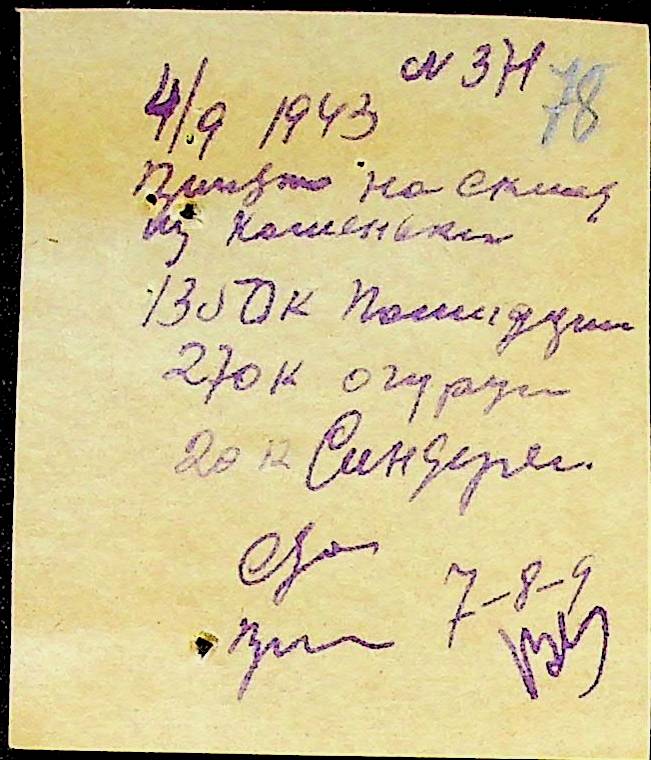 № 371
78
4/9 1943
Принято на склад
из Каменьки
1350 к Помидури
270 к огурци
20 к
Сдал
7-8-9